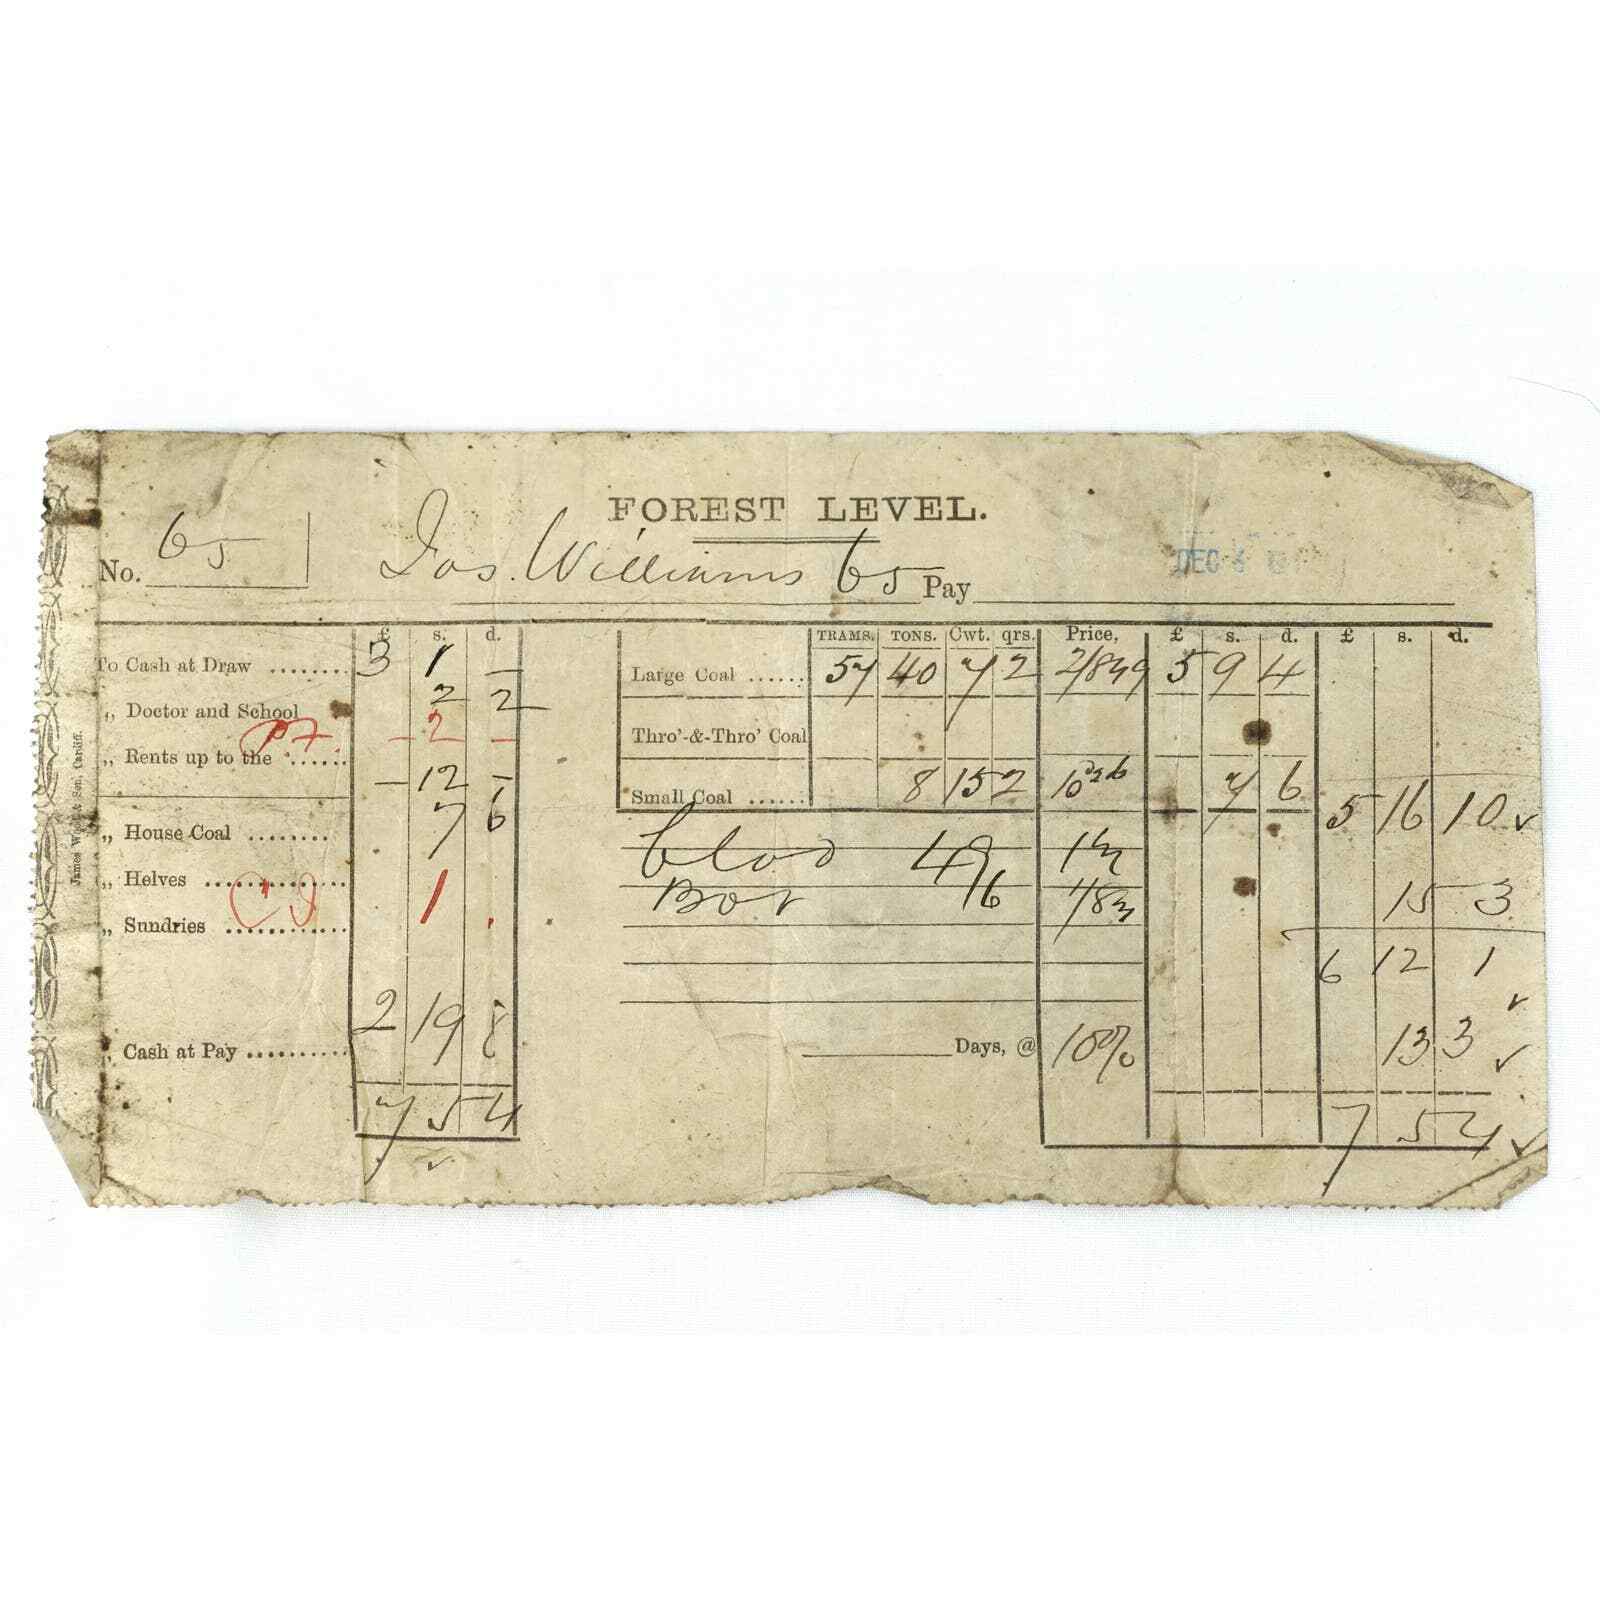 FOREST LEVEL.
No. 65 Jos. Williams 65 Pay DEC
£ s. d.
To Cash at Draw ....... 3 1 –
„ Doctor and School 2 2
– 2 –
„ Rents up to the ...... – 12 –
„ House Coal ........ 7 6
„ Helves ..............
„ Sundries ............ 1 .
„ Cash at Pay .......... 2 19 8
7 5 4
TRAMS. TONS. Cwt. qrs. Price, £ s. d. £ s. d.
Large Coal ...... 57 40 7 2 5 9 4
Thro'-&-Thro' Coal
Small Coal ...... 8 15 2 7 6 5 16 10
Clod 49
6 15 3
6 12 1
Days, @ 10% 13 3
7 5 4
James & Son, Cardiff.